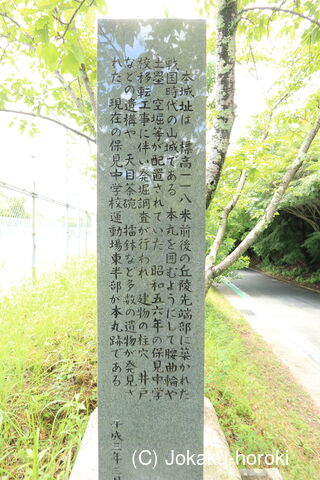 本城址は、標高一一八米前後の丘陵先端部に築かれた
戦国時代の山城である。本丸を囲むようにして腰曲輪や
土塁、空堀等が配置されていた。昭和五六年の保見中学
校移転工事に伴い発掘調査が行われ、建物の柱穴、井戸
などの遺構や、天目茶碗、擂鉢など多数の遺物が発見さ
れた。現在の保見中学校運動場東半部が本丸跡である。
平成三年三
(C) Jokaku-horoki